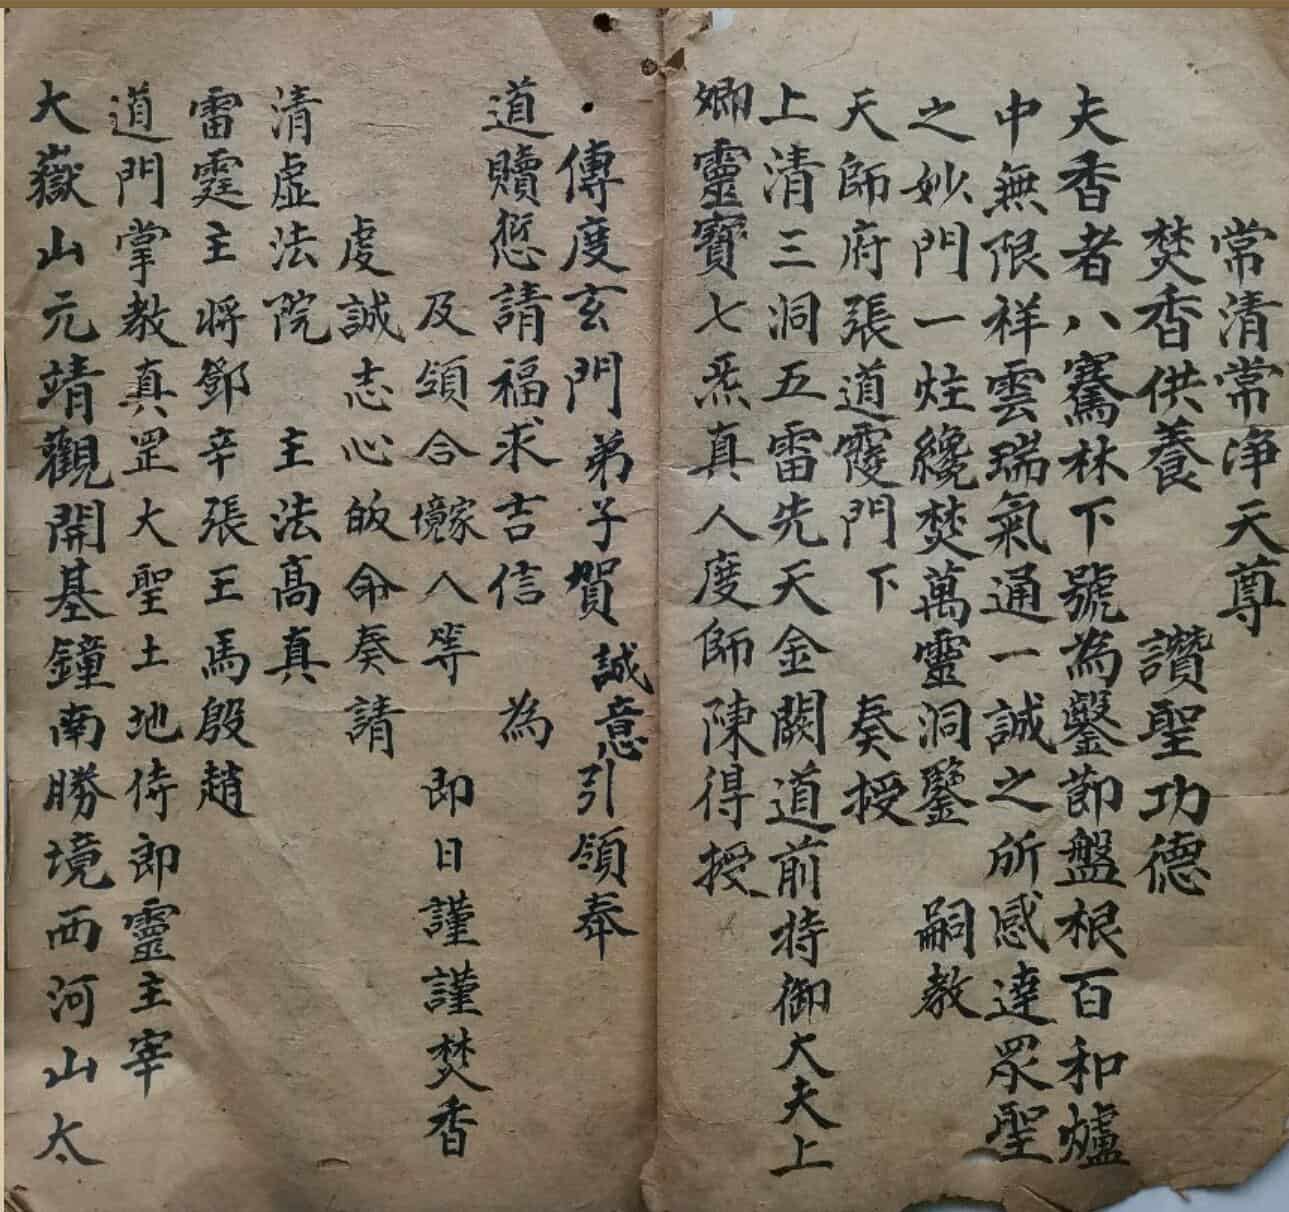 常清常净天尊
焚香供養　讚聖功德
夫香者八騫林下號為鑿節盤根百和爐
中無限祥雲瑞氣通一誠之所感達眾聖
之妙門一炷纔焚萬靈洞鑒　嗣教
天師府張道霞門下　奏授
上清三洞五雷先天金闕道前持御大夫上
卿靈寶七炁真人度師陳得授
傳度玄門弟子賀誠意引領奉
道贖愆請福求吉信　為
及領合家境人等　即日謹謹焚香
虔誠志心皈命奏請
清虛法院　主法高真
雷霆主將鄧辛張王馬殷趙
道門掌教真罡大聖土地侍郎靈主宰
大嶽山元靖觀開基鐘南勝境西河山太